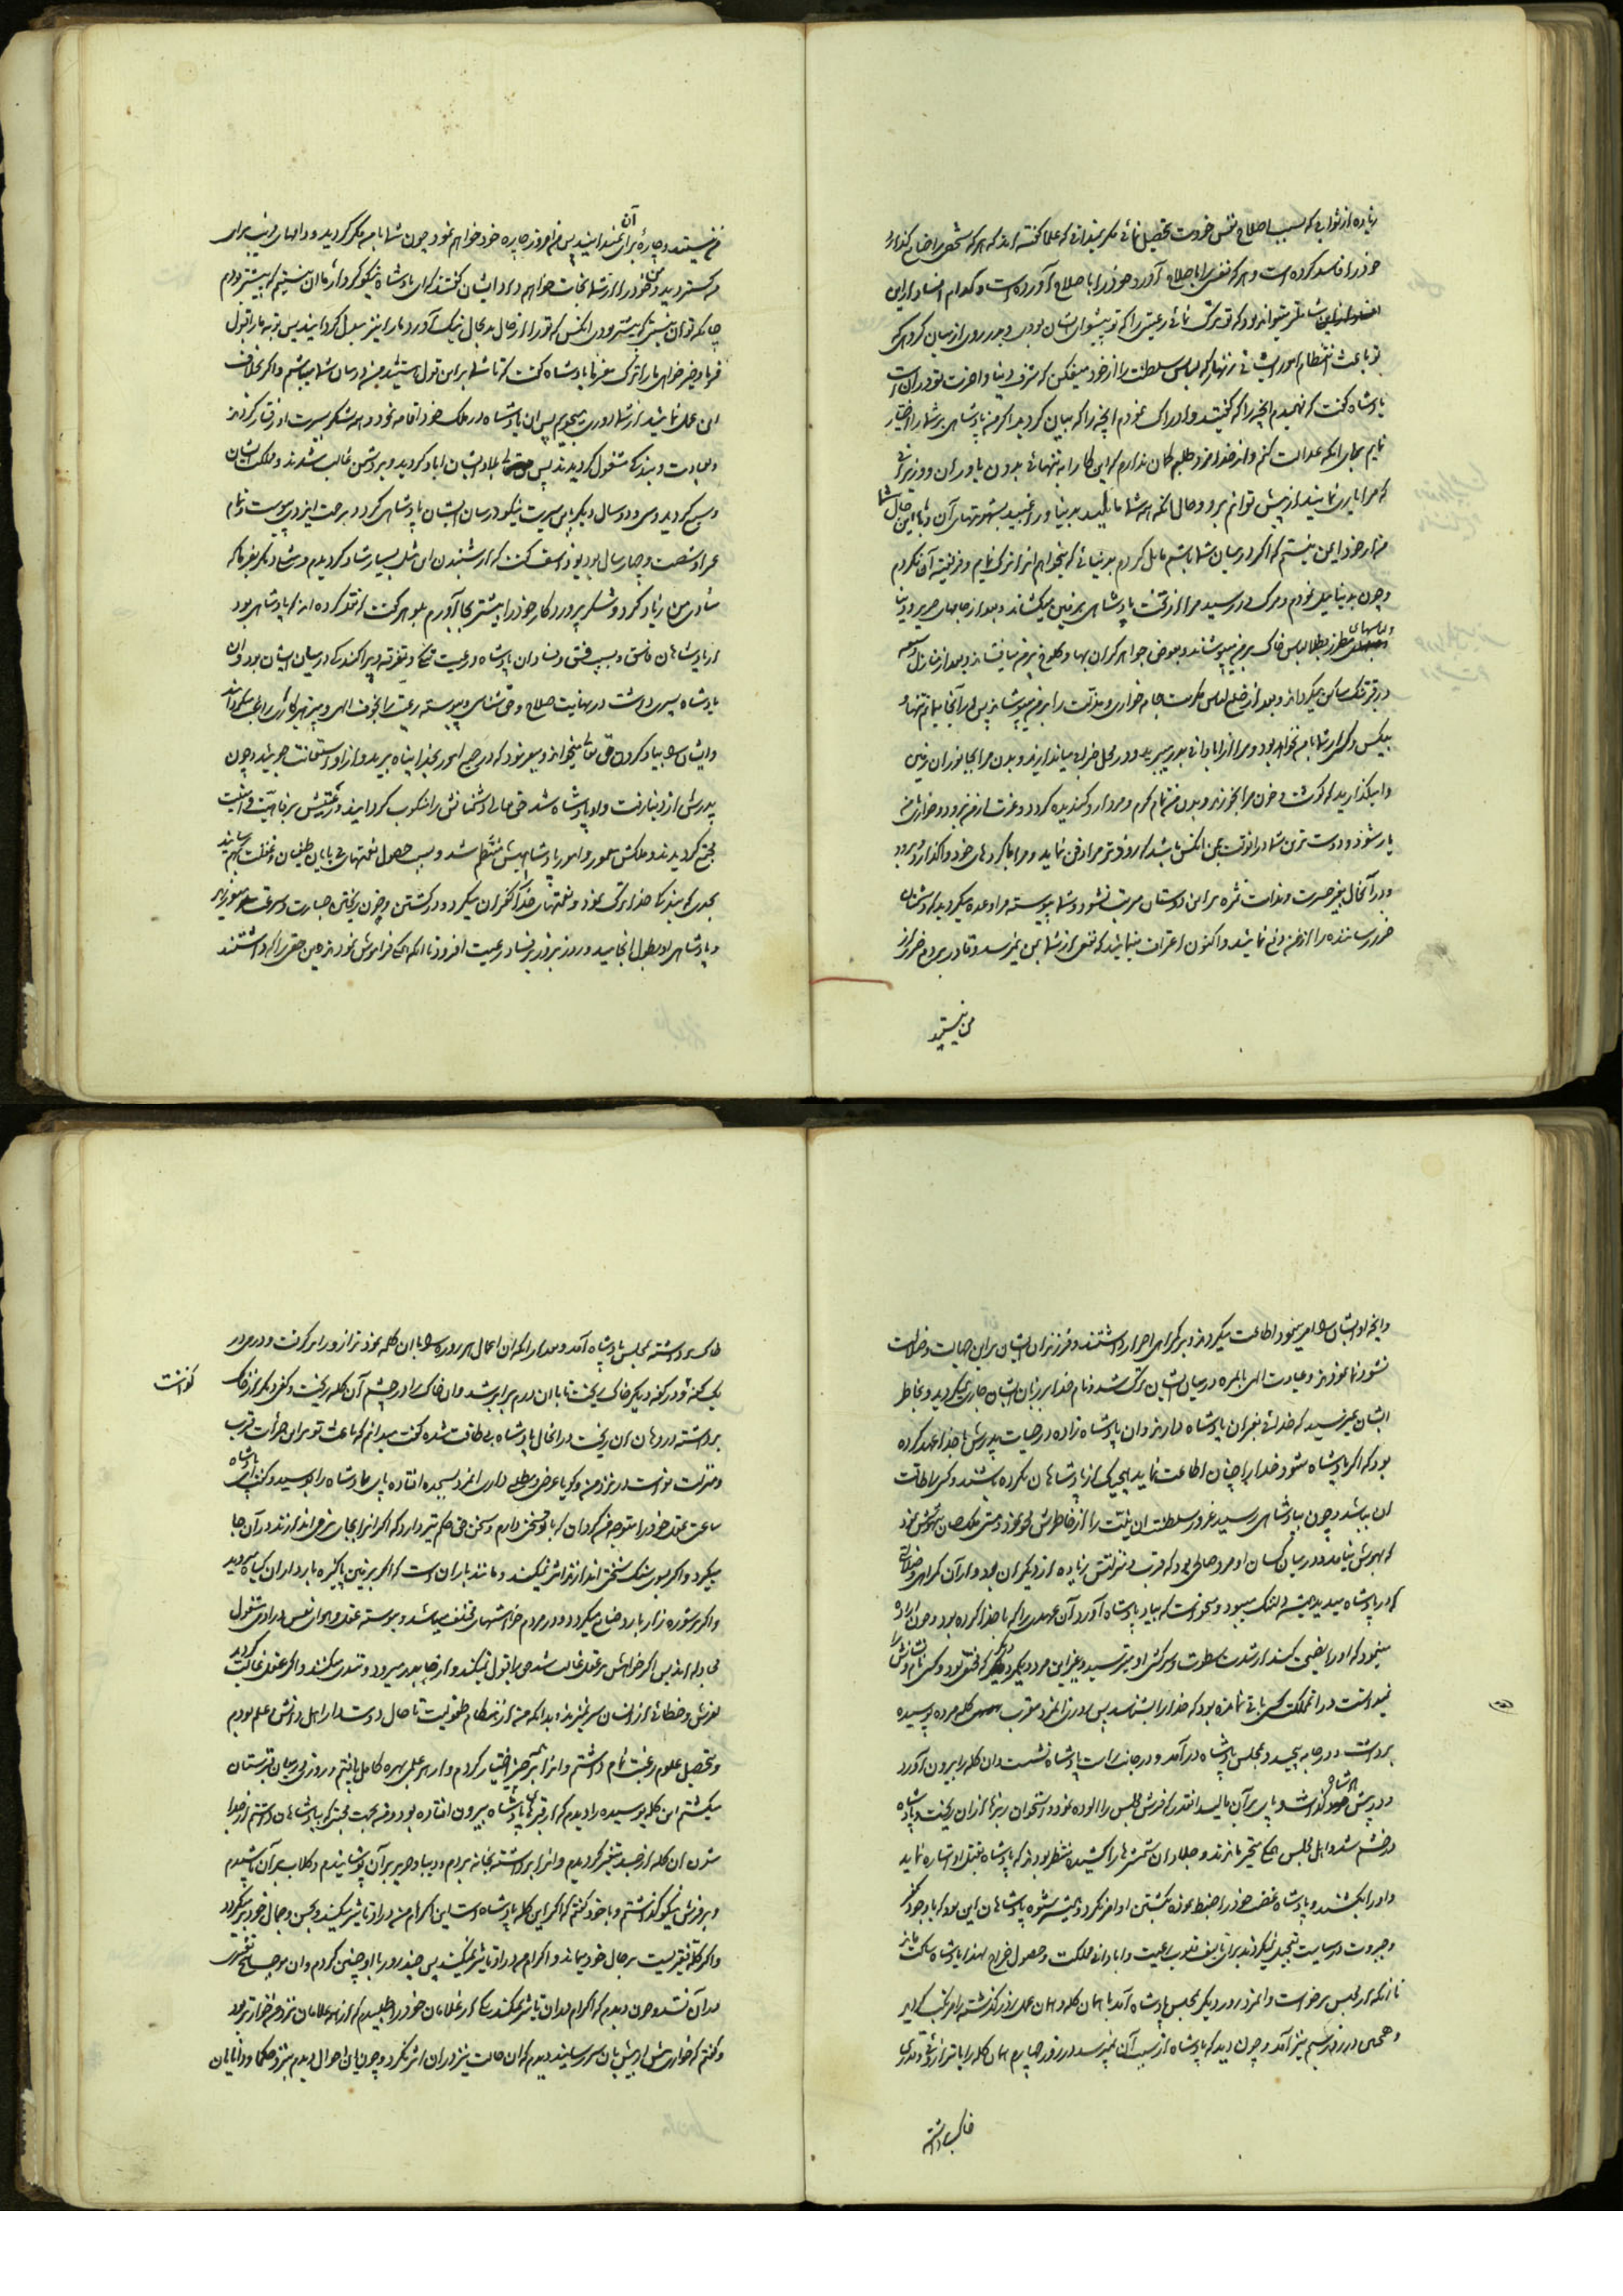 زیاده از ثوابی که بسبب اصلاح نفس خودت تحصیل نمائی مگر نمیدانی که علما گفته اند که هر که شخصی را ضایع گذارد
خود را فاسد کرده است و هر که نفسی را باصلاح آورد خود را باصلاح آورده است و کدام افساد از این
میتواند بود که تو ترک نمائی رعیتی را که تو پیشوای ایشان بودی و بدر روی از میان گروهی که
تو باعث انتظام امور ایشانی زنهار که لباس سلطنت را از خود میفکن که شرف دنیا و آخرت تو در آن است
پادشاه گفت که فهمیدم آنچه را که گفتید و ادراک نمودم آنچه را که بیان کردید اگر من پادشاهی بر شما را اختیار
نمایم برای آنکه عدالت کنم و از خدا مزد طلبم گمان ندارم که این کار را به تنهائی بدون یاوران و وزیرانی
که مرا یاری نمایند از پیش توانم برد و حال آنکه همه شما مایلید بدنیا و راغبید بشهوتهای آن و با این حال شما
من از خود ایمن نیستم که اگر در میان شما باشم مایل گردم بدنیائی که میخواهم آنرا ترک نمایم و فریفته آن گردم
و چون بدنیا میل نمودم و مرگ در رسید مرا از تخت پادشاهی بر زمین میکشاند و بعد از جامهای حریر و دیبا
و لباسهای مطرز بطلا لباس خاک بر من میپوشاند و بعوض جواهر گران بها و کلوخ بر من میافشاند و بعد از منازل وسیعه
در قبر تنگ ساکن میگرداند و بعد از خلع لباس مکرمت جامه خواری و مذلت را بر من میپوشاند پس در آنجا بمانم تنها و
بیکس و کسی از شما با من نخواهد بود و مرا از آبادانی بدر میبرید و در محل خرابی میاندازید و بدن مرا بجانوران زمین
وا میگذارید که گوشت و خون مرا بخورند و بدن من تمام کرم و مردار و گندیده گردد و عزت از من برود و خواری بمن
یار شود و دوست ترین شما در آنوقت بمن آنکس باشد که زودتر مرا دفن نماید و مرا با کردهای خود واگذارد و برود
و در آنحال بغیر حسرت و ندامت ثمره بر این دوستان مترتب نشود و شما پیوسته مرا وعده میکردید که دشمنان
ضرر رساننده را از من دفع نمائید و اکنون اعتراف مینمائید که نفعی از شما بمن نمیرسد و قادر بر دفع ضرر از
من نیستید
من نیستید و چاره برای آن نمیدانید پس من امروز چاره خود خواهم نمود چون شما با من مکر کردید و دامهای فریب برای
من گستردید من خود را از شر شما نجات خواهم داد ایشان گفتند که ای پادشاه نیکوکردار ما آن نیستیم که پیشتر بودیم
چنانکه تو آن نیستی که پیشتر بودی آنکس که تو را از حال بد بحال نیک آورد ما را نیز مبدل گردانید پس توبه ما را قبول
فرما و خیر خواهی ما را ترک مفرما پادشاه گفت که تا شما بر این قول باشید من در میان شما میباشم و اگر بخلاف
این عمل نمائید از شما دوری میجویم پس آن پادشاه در ملک خود اقامه نمود و همه لشکر بسیرت او رفتار کردند
و بعبادت و بندگی مشغول گردیدند پس بلاد ایشان آباد گردید و بر دشمن غالب شدند و ملک ایشان
وسیع گردید و سی و دو سال دیگر باین سیرت نیکو در میان ایشان پادشاهی کرد و برحمت ایزدی پیوست و تمام
عمر او شصت و چهار سال بود یوذاسف گفت که از شنیدن این مثل بسیار شاد گردیدم مثل دیگر بفرما که
شادی من زیاد گردد و شکر پروردگار خود را بیشتر بجا آورم بلوهر گفت که نقل کرده اند که پادشاهی بود
از پادشاهان فاسق و بسبب فسق و فساد آن پادشاه در رعیت تفرقه و پراکندگی در میان ایشان بود و آن
پادشاه پسری داشت در نهایت صلاح و حق شناسی و پیوسته رعیت را بخوف الهی و پرهیزکاری راغب میگردانید
و ایشان را بیاد کردن حق تعالی میخواند و میفرمود که در جمیع امور بخدا پناه برید و از او استعانت جوئید و چون
پدرش از دنیا رفت و او پادشاه شد حق تعالی دشمنانش را منکوب گردانید و رعیتش برفاهیت و امنیت
مجتمع گردیدند و ملکش معمور و امور پادشاهیش منتظم شد و بسبب حصول نعمتهای بی پایان طغیان و غفلت بهم رسانید
بحدی که بندگی خدا را ترک نمود و نعمتهای خدا را کفران میکرد و در کشتن و خون ریختن جسارت و سرعت مینمود
و پادشاهی او بطول انجامید و روز بروز بر فساد رعیت افزود تا آنکه همگی فراموش نمودند دین حقی را که داشتند
و آنچه او ایشان را امر مینمود اطاعت میکردند و بر گمراهی اصرار داشتند و فرزندان ایشان بر این جهالت و ضلالت
نشو و نما نمودند و عبادت الهی بالمره در میان ایشان ترک شد و نام خدا بر زبان ایشان جاری نمیگردید و بخاطر
ایشان نمیرسید که خدائی بغیر آن پادشاه دارند و آن پادشاه زاده در حیات پدرش با خدا عهد کرده
بود که اگر پادشاه شود خدا را چنان اطاعت نماید که هیچیک از پادشاهان نکرده باشند و کسی را طاقت
آن نباشد و چون بپادشاهی رسید غرور سلطنت آن نیت را از خاطرش محو نمود و مستی ملک چنان بیهوشش نمود
که بهوش نیامد و در میان کسان او مرد صالحی بود که قرب و منزلتش زیاده از دیگران بود و از آن گمراهی و ضلالتی
که در پادشاه میدید همیشه دلتنگ میبود و میخواست که بیاد پادشاه آورد آن عهدی را که با خدا کرده بود و چون اراده
مینمود که او را نصیحت کند از شدت سطوت و سرکشی او میترسید و بغیر این مرد و یکمرد دیگر که مختفی بود و کسی نام و نشانش را
نمیدانست در آنمملکت کسی باقی نمانده بود که خدا را بشناسد پس روزی آنمرد مقرب کله مرده پوسیده
برداشت و در جامه پیچید و بمجلس پادشاه درآمد و در جانب راست پادشاه نشست و آن کله را بیرون آورد
و در پیش پادشاه گذاشت و پای بر آن مالید آنقدر که فرش مجلس را آلوده نمود و استخوان ریزها از آن ریخت و پادشاه
در خشم شد و اهل مجلس همگی متحیر ماندند و جلادان شمشیرها را کشیده منتظر بودند که پادشاه بقتل او اشاره نماید
و او را بکشند و پادشاه غضب خود را ضبط نموده بکشتن او امر نکرد و همیشه شیوه پادشاهان این بود که با وجود تکبر
و جبروت در سیاست تعجیل نمیکردند برای تالیف قلوب رعیت و آبادانی مملکت و حصول خراج لهذا پادشاه ساکت ماند
تا آنکه او از مجلس برخواست و آنمرد روز دیگر بمجلس پادشاه آمد با همان کله و همان عمل روز گذشته را مرتکب گردید
و همچنین در روز سیم نیز آمد و چون دید که پادشاه از سبب آن نمیپرسد در روز چهارم همان کله را با ترازوئی و قدری
خاک برداشته
خاک برداشته بمجلس پادشاه آمد و بعد از آنکه آن اعمال هر روزه را با آن کله نمود ترازو را بر گرفت و درمی در
یک کفه و در کفه دیگر خاک ریخت تا با آن درم برابر شد و آن خاک را در چشم آن کله ریخت و کفی دیگر از خاک
برداشته در دهان آن ریخت در آنحال پادشاه بی طاقت شده گفت میدانم که باعث تو بر این جرأت قرب
و منزلت تواست در نزد من و گویا غرض و مطلبی داری آنمرد بسجده افتاده پای پادشاه را بوسید و گفت ای پادشاه
ساعتی عقل خود را متوجه من گردان که با تو سخنی دارم و سخن حق حکم تیر دارد که اگر آنرا بجای نرمی اندازند در آن جا
میگیرد و اگر بسوی سنگ سختی اندازند اثر نمیکند و مانند باران است که اگر بر زمین پاکیزه بارد از آن گیاه میروید
و اگر بر شوره زار بارد ضایع میگردد و در مردم خواهشهای مختلف میباشد و پیوسته عقل و هوای نفس در آدمی مشغول
مجادله اند پس اگر خواهش بر عقل غالب شد حق را قبول نمیکند و از جا بدر میرود و تندی میکند و اگر عقل غالب گردید
لغزش و خطائی از انسان سر نمیزند و بدانکه من از هنگام طفولیت تا حال دوستدار اهل دانش و علم بودم
و بتحصیل علوم رغبت تمام داشتم و آنرا بر همه چیز اختیار کردم و از هر علمی بهره کامل یافتم و روزی در میان قبرستان
میگشتم این کله پوسیده را دیدم که از قبرهای پادشاهان بیرون افتاده بود و من بجهت محبتی که بپادشاهان داشتم از جدا
شدن آن کله از جسد متغیر گردیدم و آنرا برداشته بخانه بردم و دیبا و حریر بر آن پوشانیدم و گلاب بر آن پاشیدم
و بر فرش نیکو گذاشتم و با خود گفتم که اگر این کله پادشاه است این اکرام من در او تاثیر میکند و بحسن و جمال خود بر میگردد
و اگر کله فقیریست بر حال خود بماند و اکرام من در او تاثیر نمیکند پس چند روز با او چنین کردم و آن موجب هیچ تغییری
در آن نشد و چون دیدم که اکرام در آن تاثیر نمیکند یکی از غلامان خود را طلبیدم که از همه غلامان نزد من خوارتر بود
و گفتم که خواری بسیار بآن سر رسانید دیدم که آن حالت نیز در آن اثر نکرد و چون این احوال دیدم بنزد حکما و دانایان